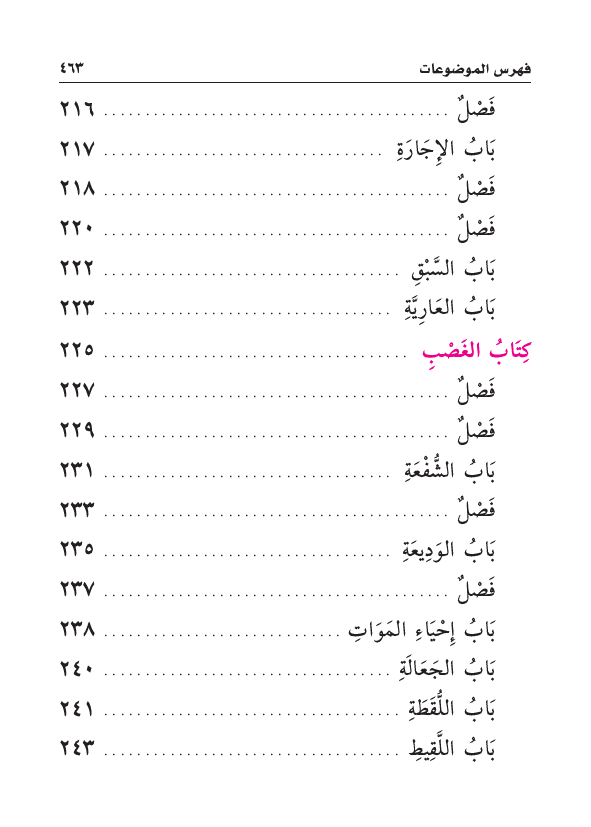 فهرس الموضوعات ٤٦٣
فَصْلٌ ........................................ ٢١٦
بَابُ الإِجَارَةِ ................................. ٢١٧
فَصْلٌ ........................................ ٢١٨
فَصْلٌ ........................................ ٢٢٠
بَابُ السَّبْقِ ................................... ٢٢٢
بَابُ العَارِيَّةِ .................................. ٢٢٣
كِتَابُ الغَصْبِ .................................... ٢٢٥
فَصْلٌ ........................................ ٢٢٧
فَصْلٌ ........................................ ٢٢٩
بَابُ الشُّفْعَةِ .................................. ٢٣١
فَصْلٌ ........................................ ٢٣٣
بَابُ الوَدِيعَةِ .................................. ٢٣٥
فَصْلٌ ........................................ ٢٣٧
بَابُ إِحْيَاءِ المَوَاتِ ............................ ٢٣٨
بَابُ الجَعَالَةِ .................................. ٢٤٠
بَابُ اللُّقَطَةِ ................................... ٢٤١
بَابُ اللَّقِيطِ ................................... ٢٤٣